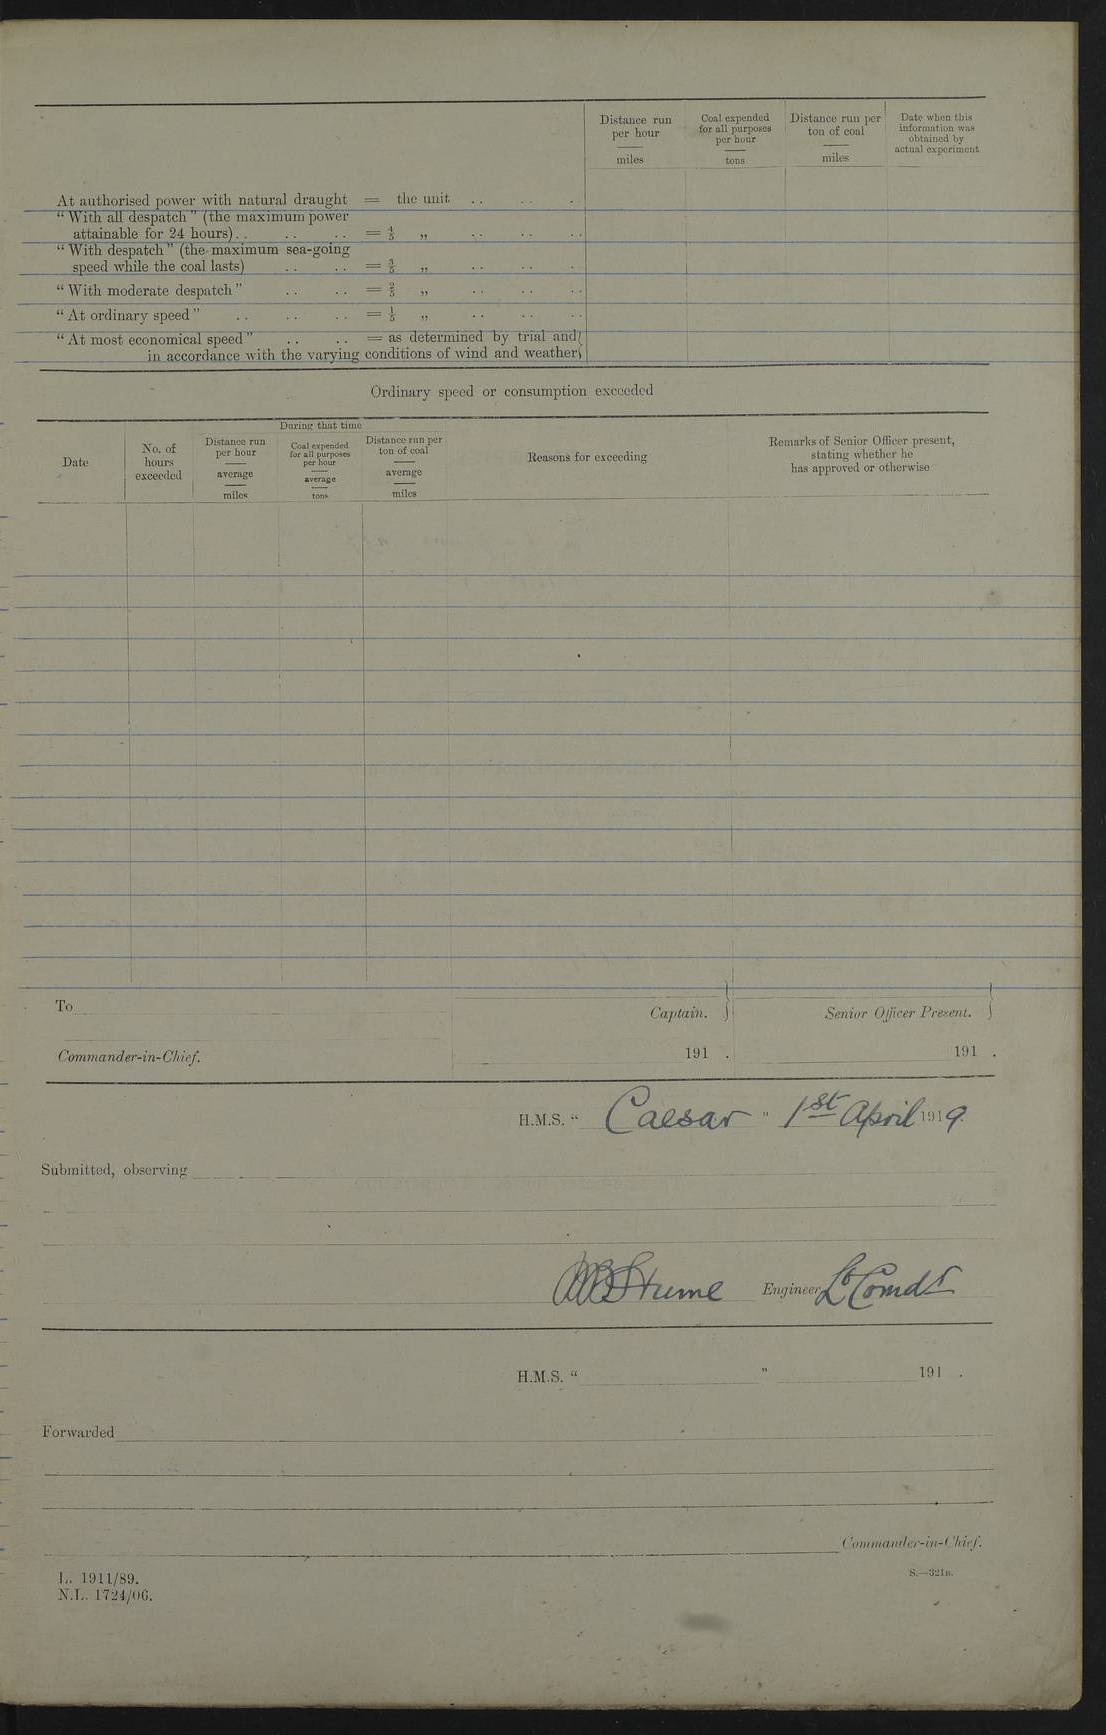 Distance run per hour miles
Coal expended for all purposes per hour tons
Distance run per ton of coal miles
Date when this information was obtained by actual experiment
At authorised power with natural draught = the unit .. .. .
“With all despatch” (the maximum power
attainable for 24 hours).. .. .. = 4/5 „ .. .. ..
“With despatch” (the maximum sea-going
speed while the coal lasts) .. .. = 3/5 „ .. .. .
“With moderate despatch” .. .. = 2/5 „ .. .. ..
“At ordinary speed” .. .. .. = 1/5 „ .. .. ..
“At most economical speed” .. .. = as determined by trial and
in accordance with the varying conditions of wind and weather
Ordinary speed or consumption exceeded
During that time
Date
No. of hours exceeded
Distance run per hour average miles
Coal expended for all purposes per hour average tons
Distance run per ton of coal average miles
Reasons for exceeding
Remarks of Senior Officer present, stating whether he has approved or otherwise
To
Captain.
Senior Officer Present.
Commander-in-Chief.
191 .
191 .
H.M.S. “ Caesar ” 1st April 1919.
Submitted, observing
Hume Engineer Lt Comdr
H.M.S. “ ” 191 .
Forwarded
Commander-in-Chief.
L. 1911/89.
N.L. 1724/06.
S.—321B.